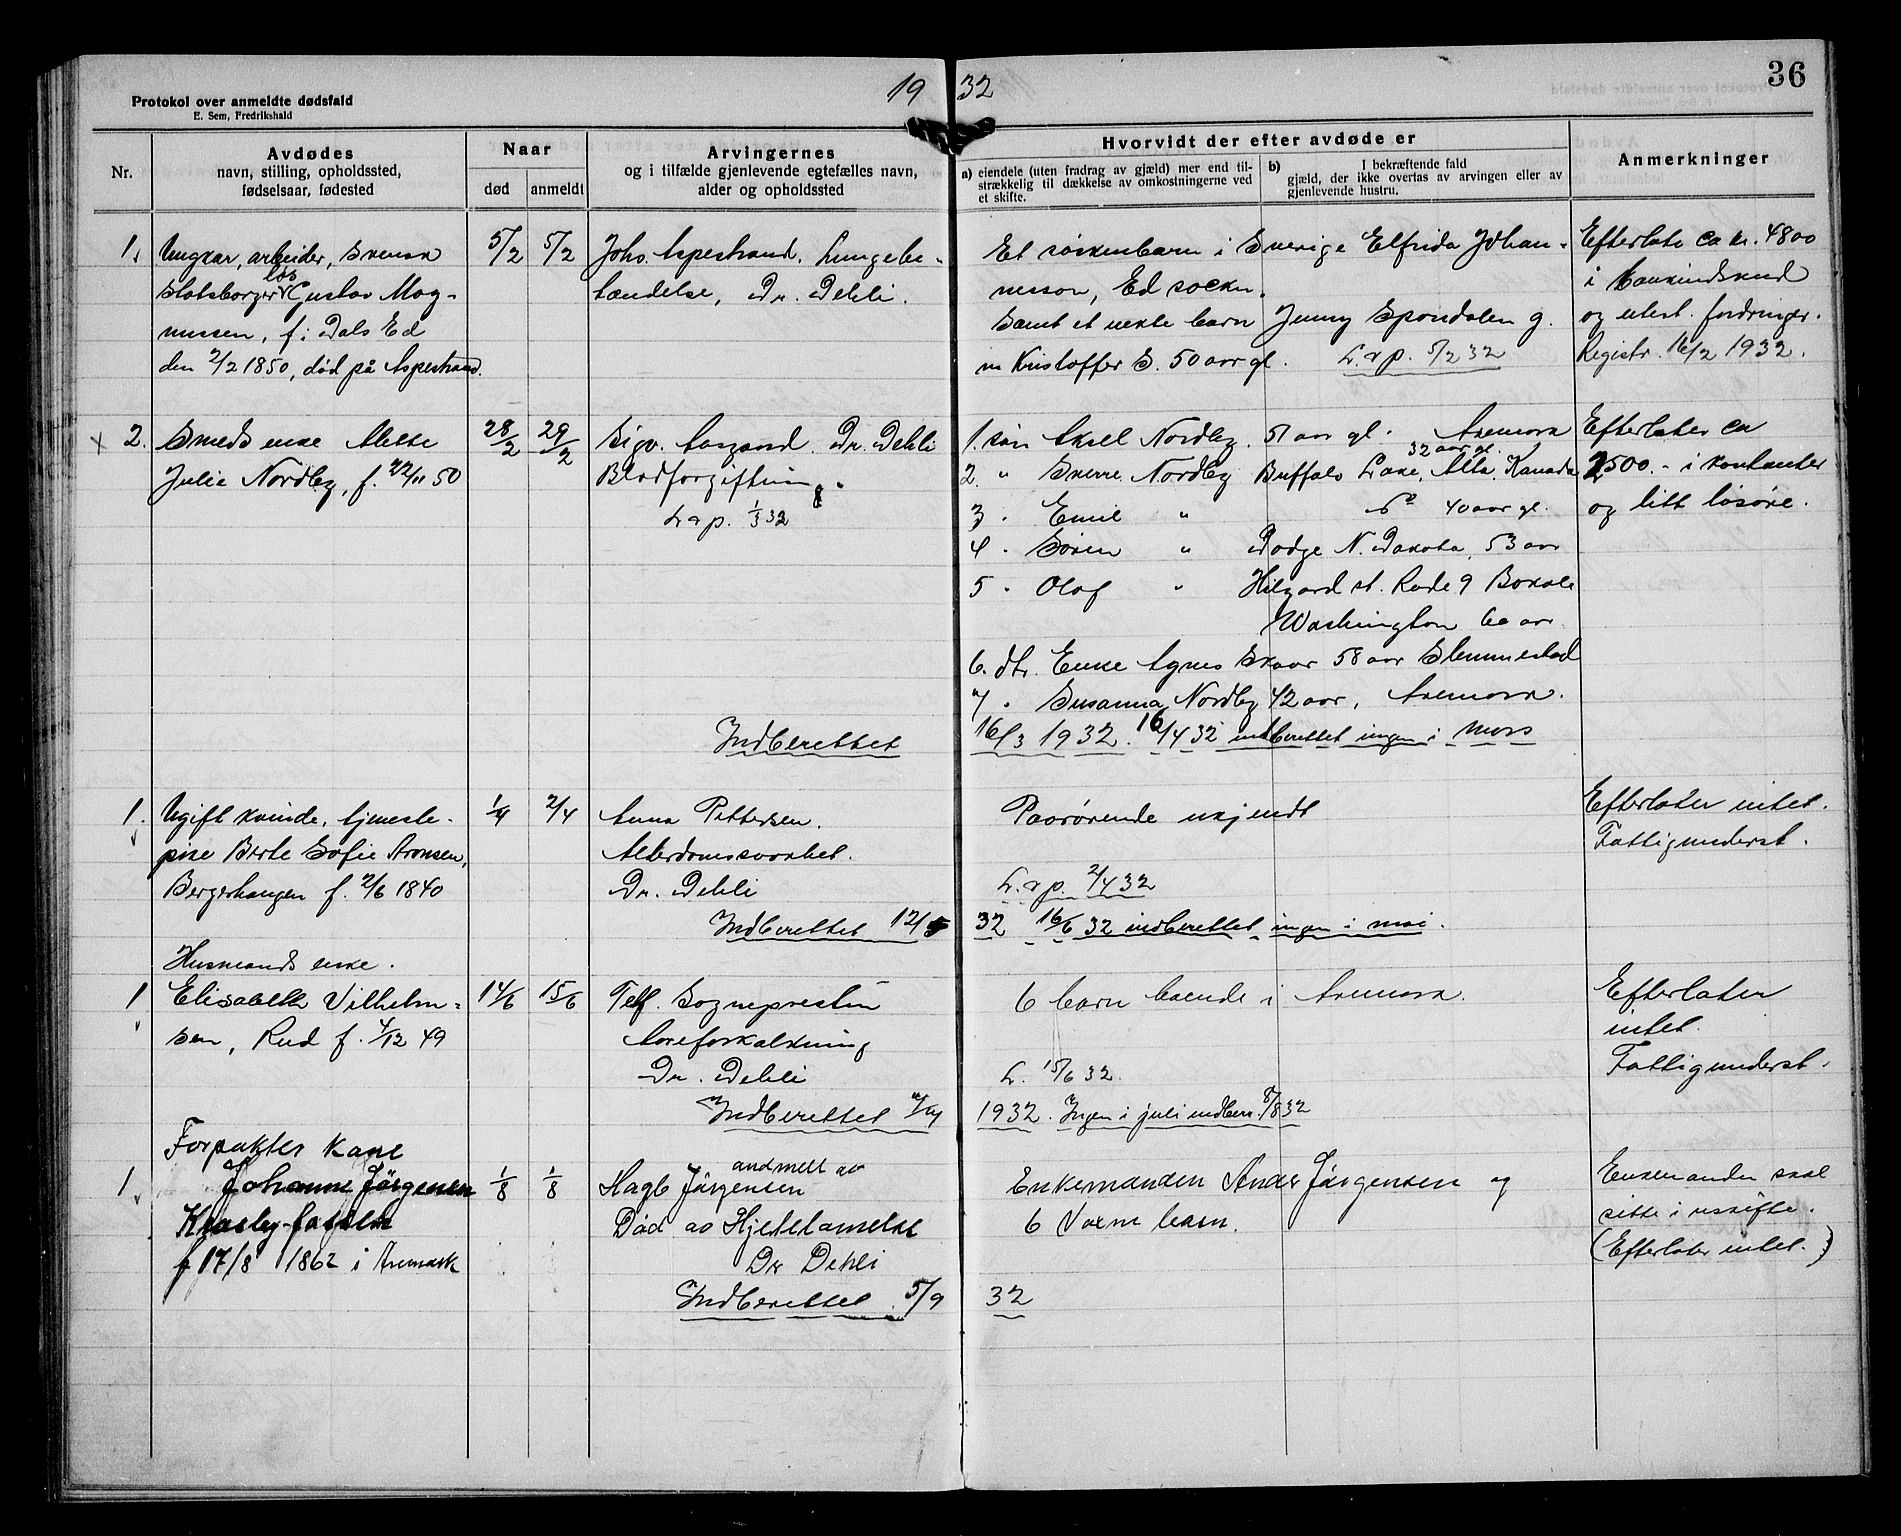 19 32
36
Protokol over anmeldte dødsfald
E. Sem, Fredrikshald
Nr.
Avdødes
navn, stilling, opholdssted,
fødselsaar, fødested
Naar
død anmeldt
Arvingernes
og i tilfælde gjenlevende egtefælles navn,
alder og opholdssted
Hvorvidt der efter avdøde er
a) eiendele (uten fradrag av gjæld) mer end til-
strækkelig til dækkelse av omkostningerne ved
et skifte.
b) I bekræftende fald
gjæld, der ikke overtas av arvingen eller av
gjenlevende hustru.
Anmerkninger
1.
Ungkar, arbeider, svensk
løs
statsborger Gustav Mag-
nussen, f. i Dals Ed
den 2/2 1850, død på Aspestrand.
5/2 5/2
Johs. Aspestrand. Lungebe-
tændelse, Dr. Dehli.
Et søskenbarn i Sverige Elfrida Johan-
nesson, Ed socken.
Samt et nekte barn Jenny Spondalen g.
m Kristoffer S. 50 aar gl. L. s p. 5/2 32
Efterlate ca kr. 4800
i bankindskud
og utest. fordringer.
Registr. 16/2 1932.
x 2.
Smeds enke Mette
Julie Nordby, f. 22/11 50
28/2 29/2
Sigv. Aasgaard. Dr. Dehli
Blodforgiftning.
L s p. 1/3 32
1. søn Aksel Nordby. 51 aar gl. Aremark
32 aar gl.
2. " Sverre Nordby Buffalo Lake, Alta, Kanada
3 . Emil " do 40 aar gl.
4 . Søren " Dodge N. Dakota, 53 aar
5 . Olaf " Hilyard st. Rude 9 Boxale
Washington 60 aar.
6. dtr. Enke Agnes Skaar 58 aar Slemmestad
7 . Susanna Nordby 42 aar, Aremark.
Efterlater ca
2500.- i kontanter
og litt løsøre.
Indberettet 16/3 1932. 16/4 32 indberettet ingen i mars
1.
Ugift kvinde, tjeneste-
pike Berte Sofie Aronsen,
Bergerhaugen f. 2/6 1840
1/4 2/4
Anna Pettersen.
Alderdomssvakhet.
Dr. Dehli
Paarørende ukjendt
L. s p. 2/4 32
Efterlater intet.
Fattigunderst.
Indberettet 12/5 32 16/6 32 indberettet ingen i mai.
1
Husmands enke.
Elisabeth Vilhelm-
sen, Rud f. 4/12 49
14/6 15/6
Telf. Sognepresten
Aareforkalkning
Dr. Dehli
6 barn boende i Aremark.
L. 15/6 32.
Efterlater
intet.
Fattigunderst.
Indberettet 1932. Ingen i juli indber. 8/8 32
1
Forpakter kone
Johanne Jörgensen
f 17/8 1862 i Aremark
1/8 1/8
andmelt av
Hagb Jörgensen
Död av Hjertelamelse
Dr Dehli
Enkemanden Anders Jörgensen og
6 Voxne barn.
Enkemanden skal
sitte i uskifte.
(Efterlater intet.)
Indberettet 5/9 32